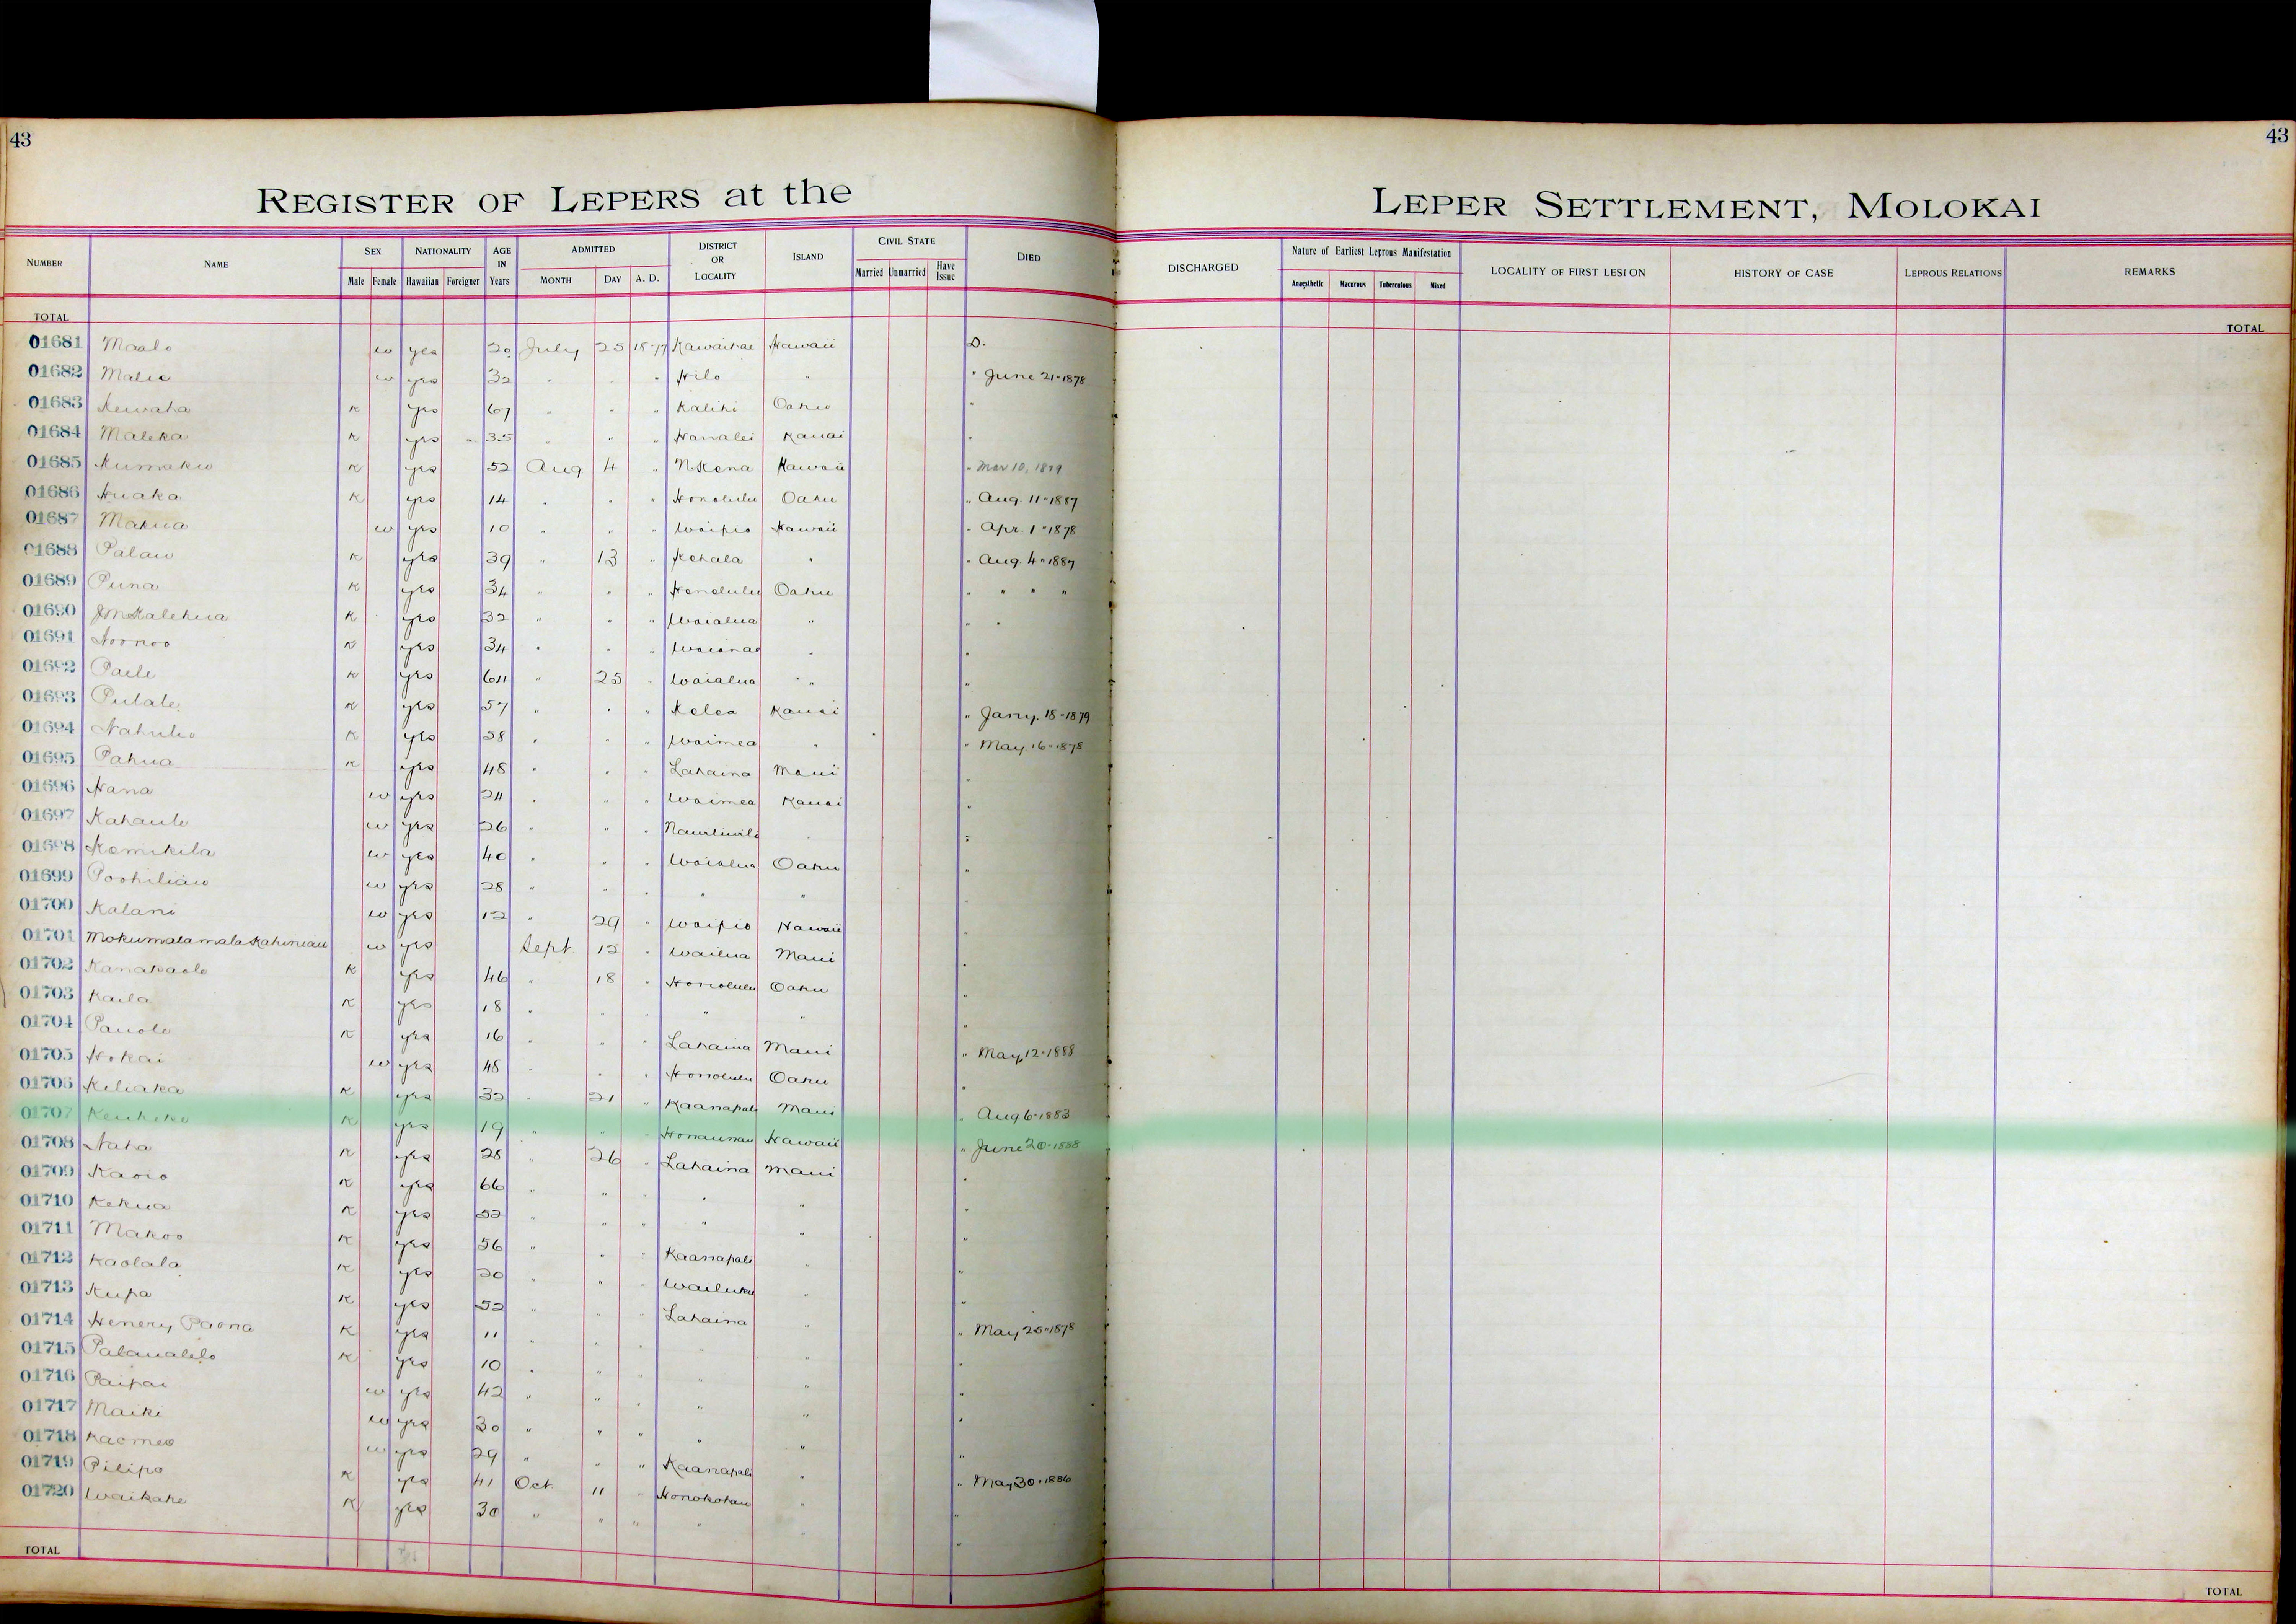 43
43
REGISTER OF LEPERS at the
LEPER SETTLEMENT, MOLOKAI
NUMBER NAME SEX NATIONALITY AGE IN Years ADMITTED DISTRICT OR LOCALITY ISLAND CIVIL STATE DIED
Male Female Hawaiian Foreigner MONTH DAY A. D. Married Unmarried Have Issue
DISCHARGED Nature of Earliest Leprous Manifestation LOCALITY OF FIRST LESION HISTORY OF CASE LEPROUS RELATIONS REMARKS
Anaesthetic Macurous Tuberculous Mixed
TOTAL
TOTAL
01681 Maalo w yes 20 July 25 1877 Kawaihae Hawaii D.
01682 w yes 32 " " " Hilo " " June 21-1878
01683 Kewaha K yes 67 " " " Kalihi Oahu "
01684 Maleka K yes 35 " " " Hanalei Kauai "
01685 Kumaku K yes 52 Aug 4 " N Kona Hawaii " Mar 10, 1879
01686 Huaka K yes 14 " " " Honolulu Oahu " Aug. 11-1887
01687 Mahua w yes 10 " " " Waipio Hawaii " Apr. 1-1878
01688 Palau K yes 39 " 13 " Kohala " " Aug. 4-1887
01689 Puna K yes 34 " " " Honolulu Oahu " " " "
01690 K yes 32 " " " Waialua " " "
01691 Noonoo K yes 34 " " " Waianae " "
01692 Paele K yes 64 " 25 " Waialua " "
01693 Pulale K yes 57 " " " Kolea Kauai " Jany. 18-1879
01694 K yes 28 " " " Waimea " " May 16-1878
01695 Pahua K yes 48 " " " Lahaina Maui "
01696 Hana w yes 24 " " " Waimea Kauai "
01697 Kahaule w yes 26 " " " "
01698 Kamikila w yes 40 " " " Waialua Oahu "
01699 Poohiliau w yes 28 " " " " " "
01700 Kalani w yes 12 " 29 " Waipio Hawaii "
01701 w yes Sept 12 " Wailua Maui "
01702 Kanakaole K yes 46 " 18 " Honolulu Oahu "
01703 Kaila K yes 18 " " " " " "
01704 Pauole K yes 16 " " " Lahaina Maui " May 12-1888
01705 Hokai w yes 48 " " " Honolulu Oahu "
01706 Keliaka K yes 32 " 21 " Kaanapali Maui " Aug 6-1883
01707 K yes 19 " " " Honaunau Hawaii " June 20-1888
01708 Naha K yes 28 " 26 " Lahaina Maui "
01709 Kaoio K yes 66 " " " " " "
01710 Kekua K yes 52 " " " " " "
01711 Makoo K yes 56 " " " Kaanapali " "
01712 Kaolala K yes 20 " " " Wailuku " "
01713 Kupa K yes 52 " " " Lahaina " "
01714 Henery Paona K yes 11 " " " " " " May 25-1878
01715 Palaualelo K yes 10 " " " " " "
01716 Paipai w yes 42 " " " " " "
01717 Maiki w yes 30 " " " " " "
01718 w yes 29 " " " Kaanapali " "
01719 Pilipo K yes 41 Oct 11 " Honokohau " " May 30-1886
01720 Waikahe K yes 30 " " " " " "
TOTAL
TOTAL